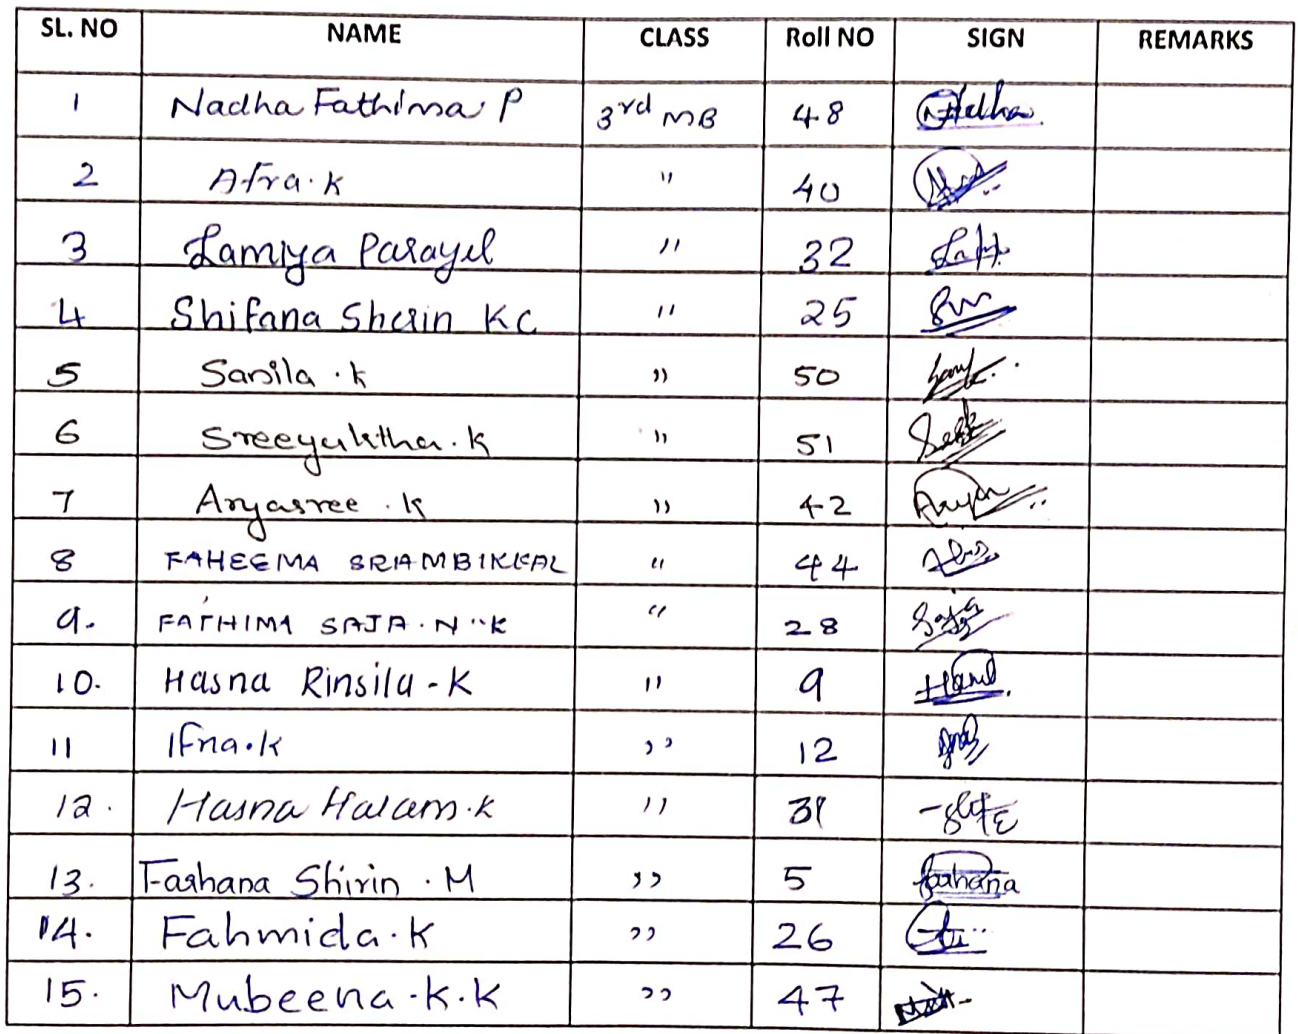 SL. NO NAME CLASS Roll NO SIGN REMARKS
1 Nadha Fathima P 3rd MB 48 Nadha
2 Afra.K " 40
3 Lamiya Parayil " 32
4 Shifana Sherin KC " 25
5 Sanila .K " 50
6 Sreeyuktha.K " 51
7 Aryasree .K " 42
8 FAHEEMA SRAMBIKKAL " 44
9. FATHIMA SAJA.N.K " 28
10. Hasna Rinsila-K " 9
11 Ifna.K " 12
12. Hasna Halam.K " 31
13. Farhana Shirin .M " 5 farhana
14. Fahmida.K " 26
15. Mubeena.K.K " 47